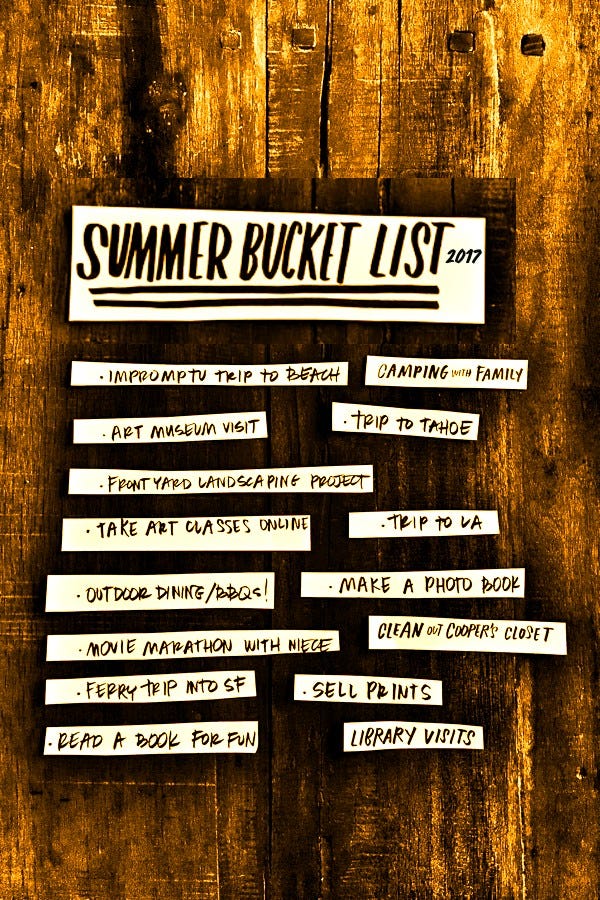 SUMMER BUCKET LIST 2017
· IMPROMPTU TRIP TO BEACH
CAMPING WITH FAMILY
· ART MUSEUM VISIT
· TRIP TO TAHOE
· FRONT YARD LANDSCAPING PROJECT
· TAKE ART CLASSES ONLINE
· TRIP TO LA
· OUTDOOR DINING/BBQs!
· MAKE A PHOTO BOOK
· MOVIE MARATHON WITH NIECE
CLEAN OUT COOPER'S CLOSET
· FERRY TRIP INTO SF
· SELL PRINTS
· READ A BOOK FOR FUN
LIBRARY VISITS